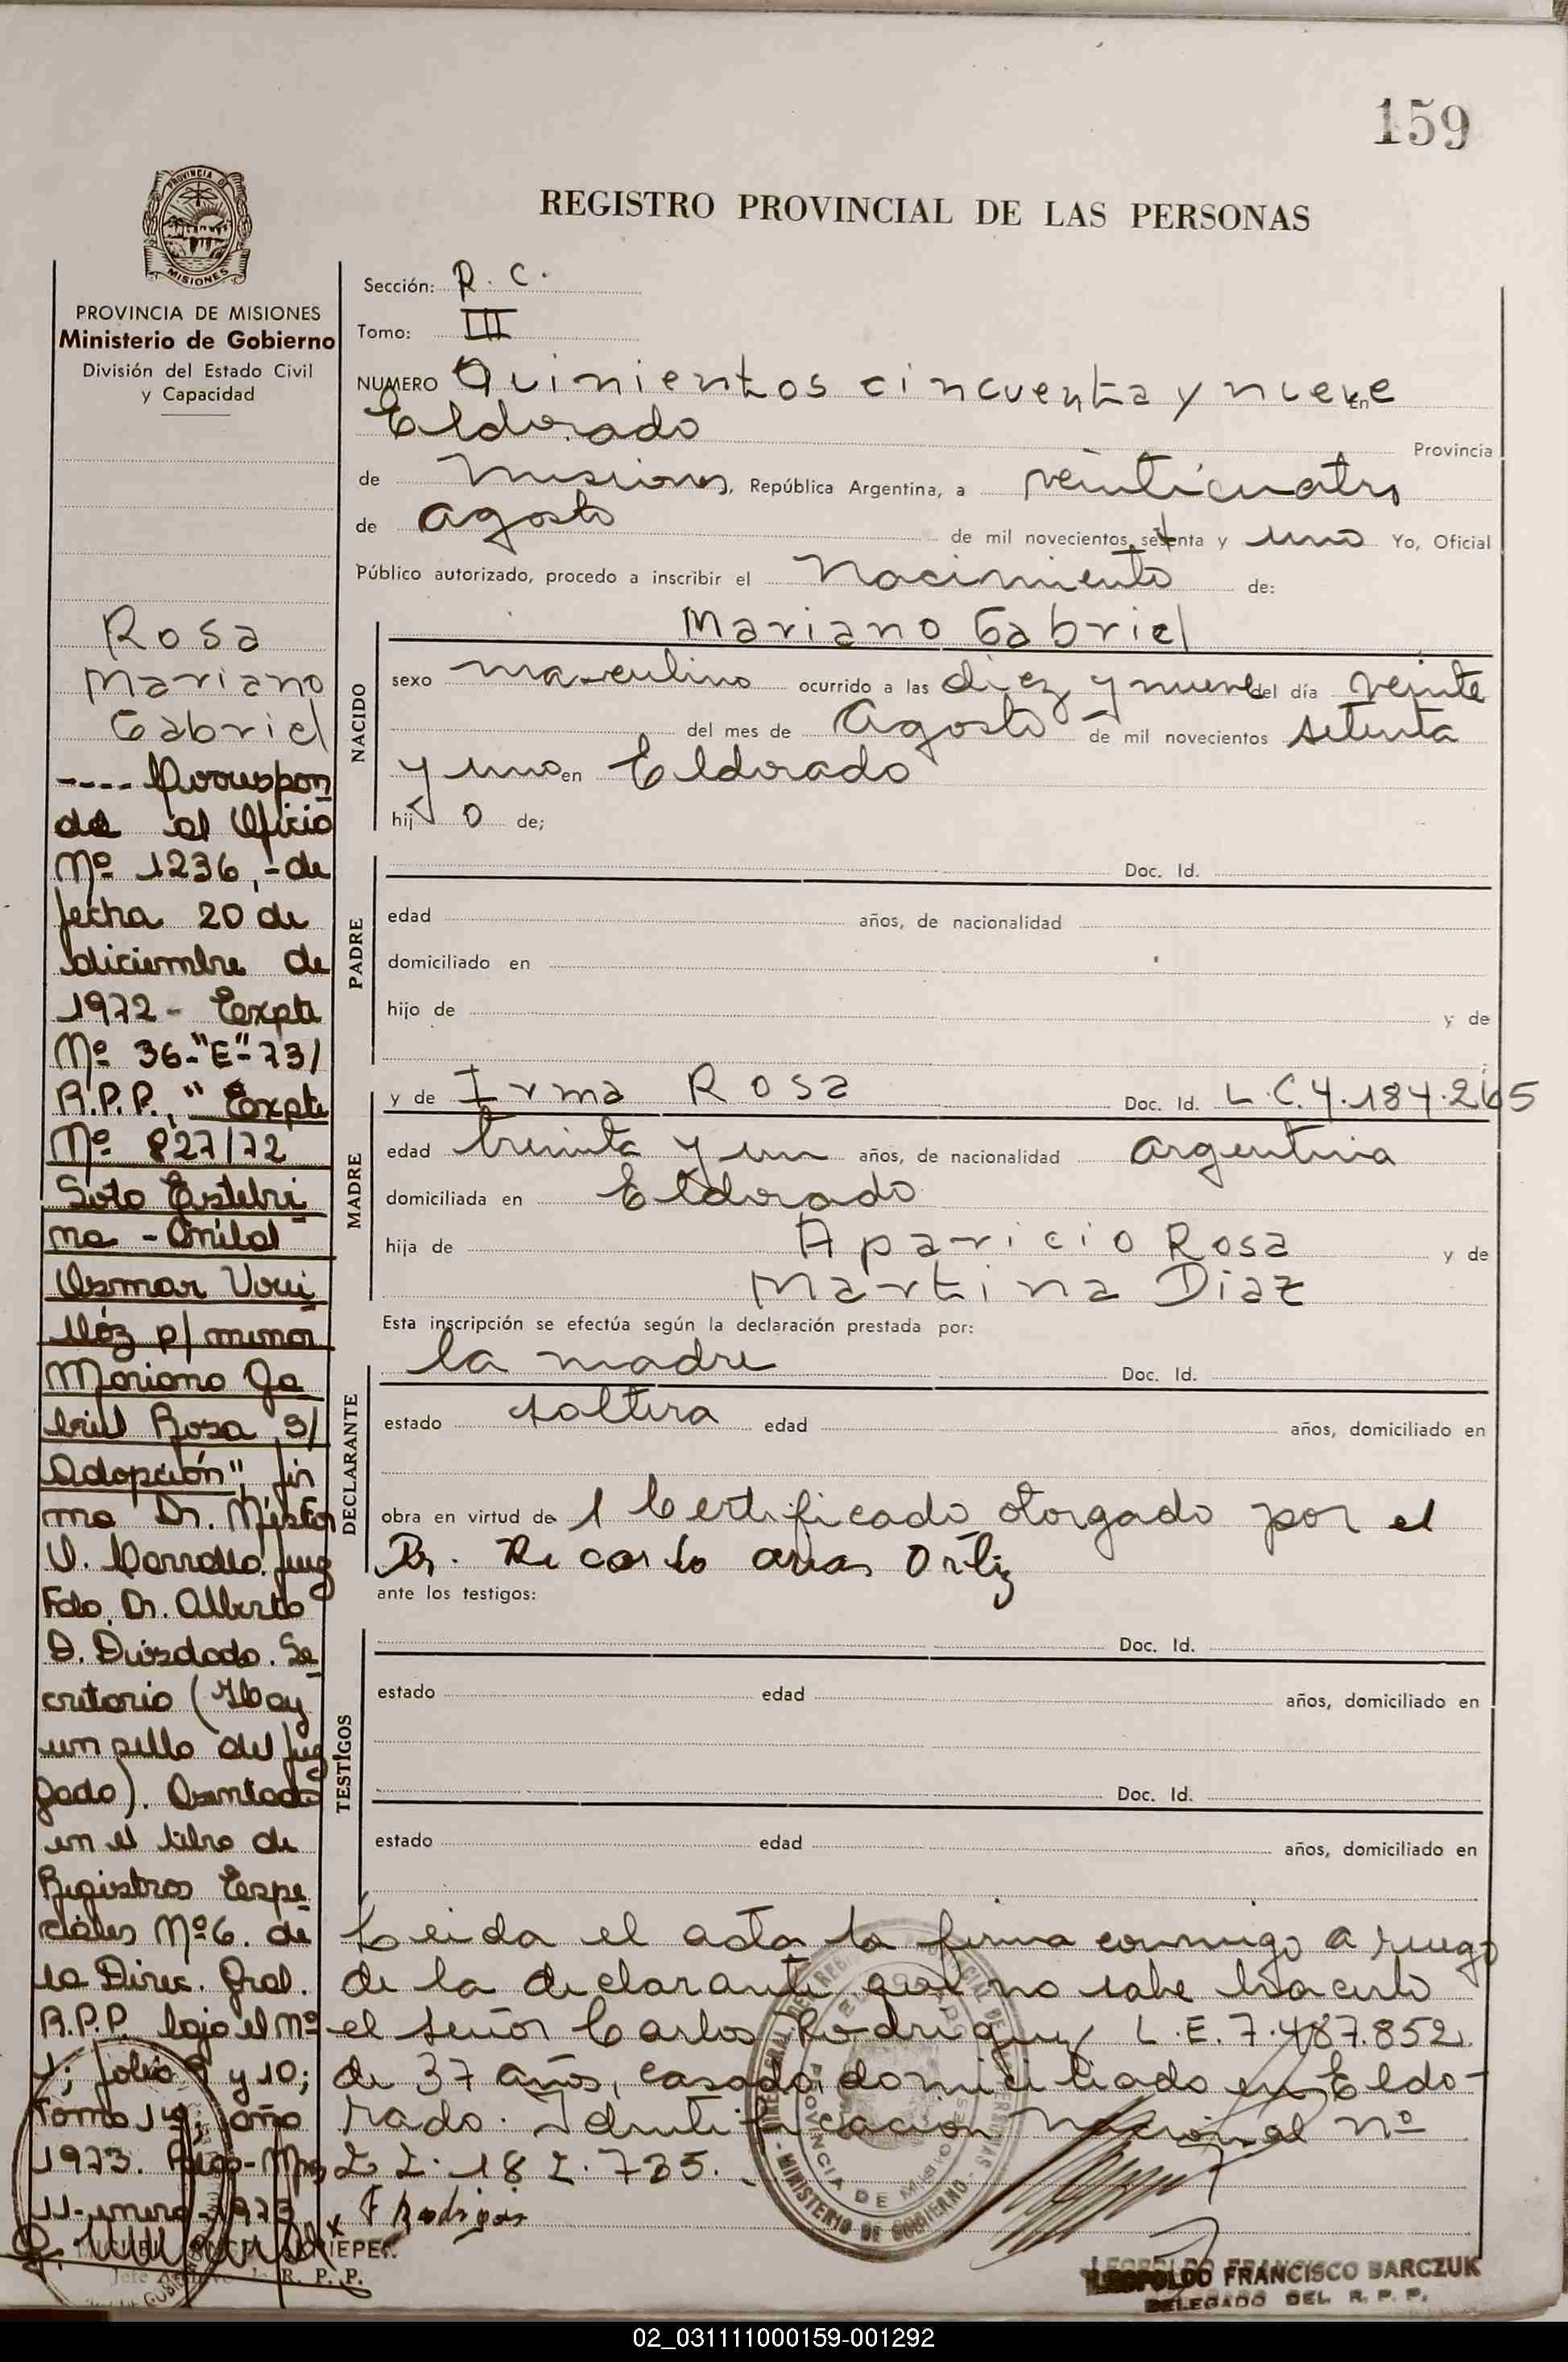 159
REGISTRO PROVINCIAL DE LAS PERSONAS
PROVINCIA DE MISIONES
Ministerio de Gobierno
División del Estado Civil
y Capacidad
Rosa
Mariano
Gabriel
---- Correspon
de al Oficio
Nº 1236,- de
fecha 20 de
diciembre de
1972- Expte
Nº 36-"E"-73/
R.P.P., "Expte
Nº 827/72
Soto Estebri
na - Onilal
Osmar
p/ menor
Mariano Ga
briel Rosa s/
Adopción", fir
ma Dr. Néstor
Juez
Fdo. Dr. Alberto
D. Se
cretario (Hay
un sello del Juz
gado). Asentada
en el libro de
Registros Espe
ciales Nº 6. de
la Direc. Gral.
R.P.P. bajo el Nº
1; folio 9 y 10;
Tomo 1º; año
1973.
11-enero-1973
R. P. P.
Sección: R. C.
Tomo: III
NUMERO Quinientos cincuenta y nueve en
Eldorado Provincia
de Misiones, República Argentina, a veinticuatro
de agosto de mil novecientos setenta y uno Yo, Oficial
Público autorizado, procedo a inscribir el Nacimiento de:
NACIDO
Mariano Gabriel
sexo masculino ocurrido a las diez y nueve del día veinte
del mes de Agosto de mil novecientos setenta
y uno en Eldorado
hijo de;
PADRE
Doc. Id.
edad años, de nacionalidad
domiciliado en
hijo de y de
MADRE
y de Irma Rosa Doc. Id. L.C.4.184.265
edad treinta y un años, de nacionalidad argentina
domiciliada en Eldorado
hija de Aparicio Rosa y de
Martina Diaz
Esta inscripción se efectúa según la declaración prestada por:
DECLARANTE
la madre Doc. Id.
estado soltera edad años, domiciliado en
obra en virtud de 1 Certificado otorgado por el
Dr. Ricardo arias Ortiz
ante los testigos:
TESTIGOS
Doc. Id.
estado edad años, domiciliado en
Doc. Id.
estado edad años, domiciliado en
Leida el acta la firma conmigo a ruego
de la declarante que no sabe hacerlo
el señor Carlos Rodriguez L.E.7.487.852.
de 37 años, casado, domiciliado en Eldo-
rado. Identificacion Nacional nº
22.182.735.
LEOPOLDO FRANCISCO BARCZUK
DELEGADO DEL R. P. P.
02_031111000159-001292